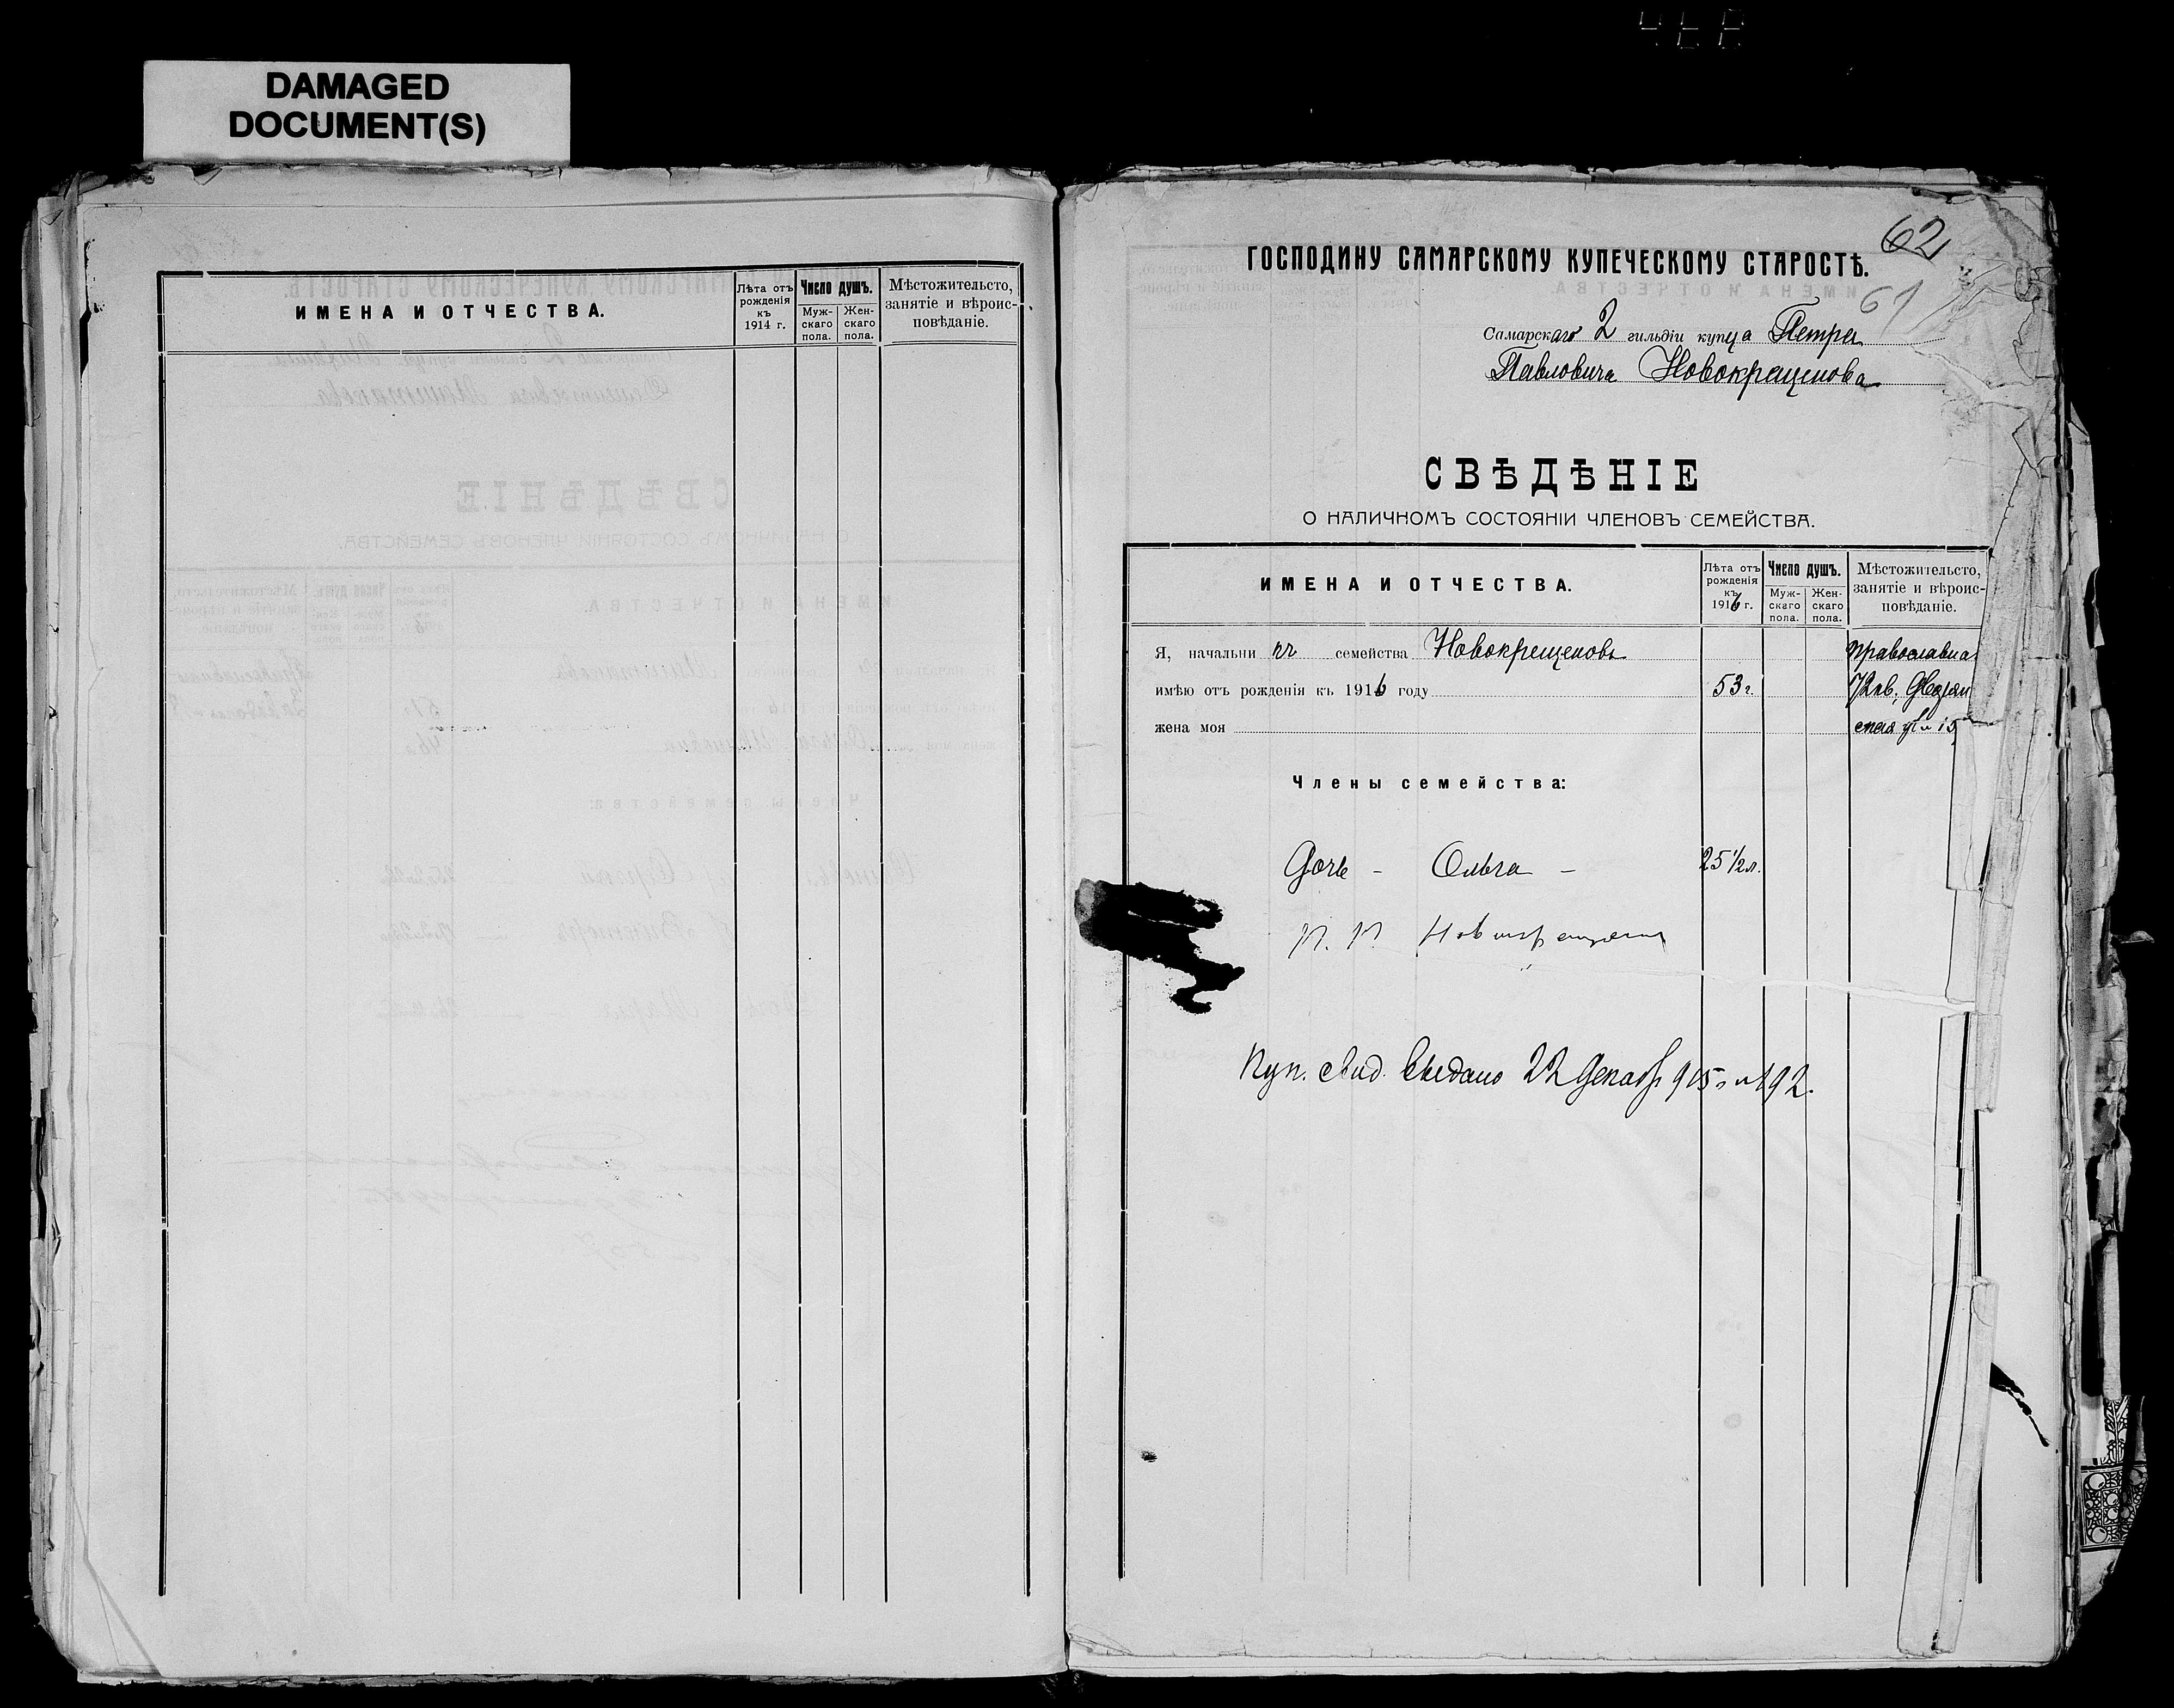 DAMAGED
DOCUMENT(S)
ИМЕНА И ОТЧЕСТВА.
Лѣта отъ рожденія къ 1914 г.
Число душъ.
Муж-скаго пола.
Жен-скаго пола.
Мѣстожительсто, занятіе и вѣроис-повѣданіе.
62
61
ГОСПОДИНУ САМАРСКОМУ КУПЕЧЕСКОМУ СТАРОСТѢ.
Самарскаго 2 гильдіи купца Петра
Павловича Новокрещенова
СВѢДѢНІЕ
О НАЛИЧНОМЪ СОСТОЯНІИ ЧЛЕНОВЪ СЕМЕЙСТВА.
ИМЕНА И ОТЧЕСТВА.
Лѣта отъ рожденія къ 1916 г.
Число душъ.
Муж-скаго пола.
Жен-скаго пола.
Мѣстожительсто, занятіе и вѣроис-повѣданіе.
Я, начальникъ семейства Новокрещеновъ
имѣю отъ рожденія къ 1916 году 53 г.
жена моя
Члены семейства:
Дочь - Ольга - 25 1/2 л.
П. П.
Куп. свид. выдано 22 Декабр 915 г. № 192.